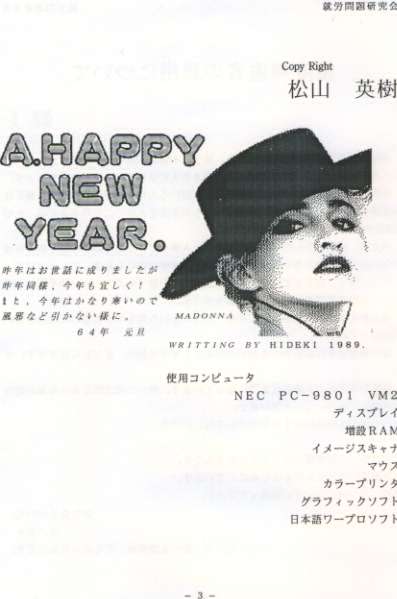 就労問題研究会
Copy Right
松山 英樹
A.HAPPY
NEW
YEAR.
昨年はお世話に成りましたが
昨年同様、今年も宜しく!
まと、今年はかなり寒いので
風邪など引かない様に。
64年 元旦
MADONNA
WRITTING BY HIDEKI 1989.
使用コンピュータ
NEC PC-9801 VM2
ディスプレイ
増設RAM
イメージスキャナ
マウス
カラープリンタ
グラフィックソフト
日本語ワープロソフト
- 3 -